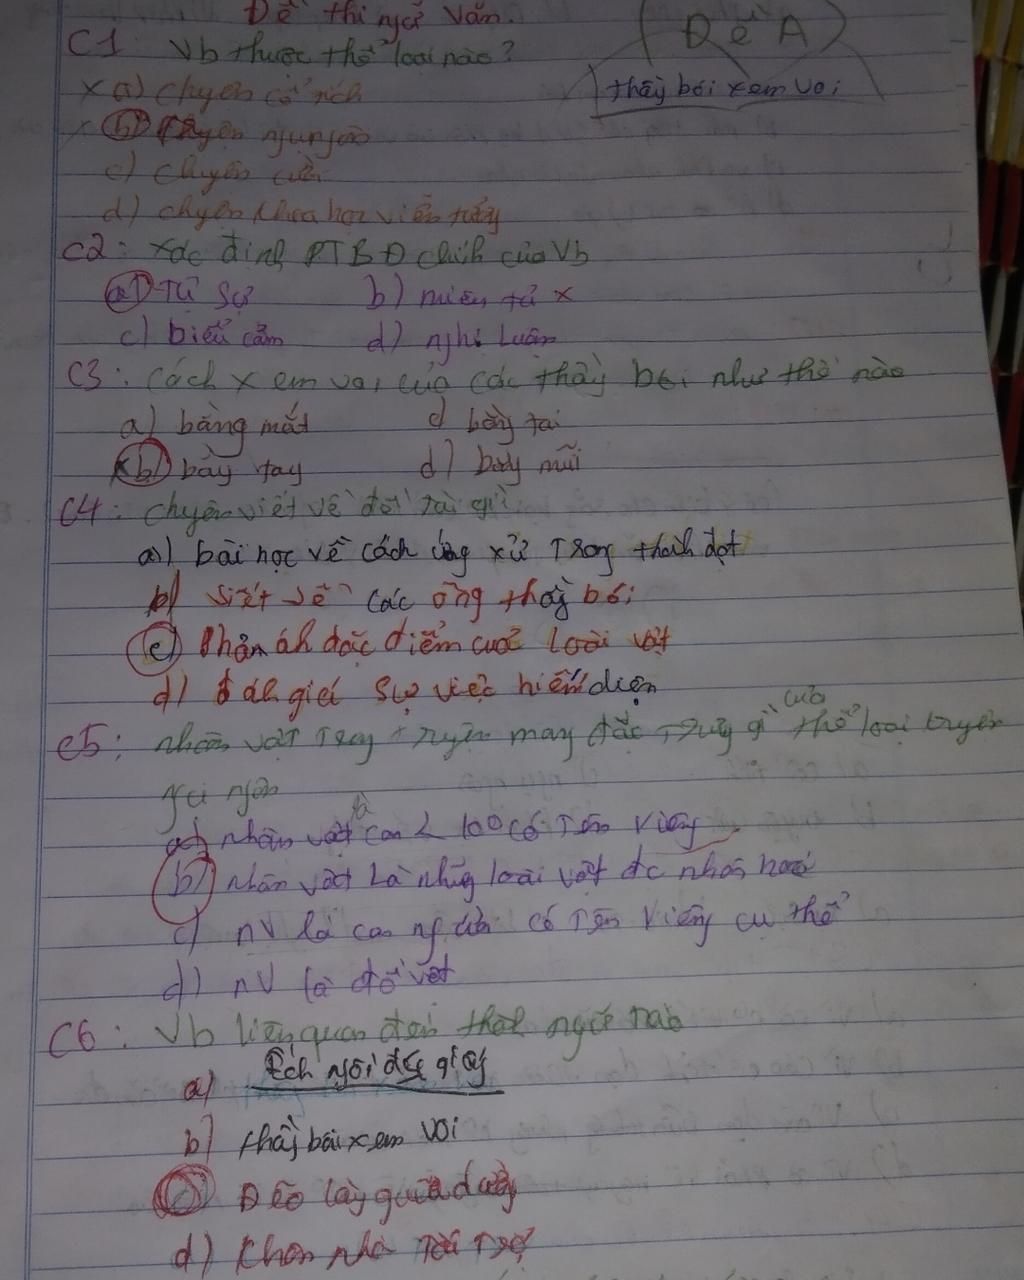 Đề thi ngữ văn.
Đề A
C1 Vb thuộc thể loại nào?
thầy bói xem voi
x a) chuyện cổ tích
b) truyện ngụ ngôn
c) chuyện cười
d) chuyện khoa học viễn tưởng
C2: xác định PTBĐ chính của Vb
a) Tự sự b) miêu tả x
c) biểu cảm d) nghị luận
C3: cách xem voi của các thầy bói như thế nào
a) bằng mắt c) bằng tai
b) bằng tay d) bằng mũi
C4: chuyện viết về đề tài gì
a) bài học về cách ứng xử trong
b) viết về các ông thầy bói
c) phản ánh đặc điểm của loài vật
d) đánh giá sự việc hiện diện
C5: nhân vật trong truyện mang đặc trưng gì của thể loại truyện
ngụ ngôn
a) nhân vật là con có tên riêng
b) nhân vật là những loài vật đc nhân hoá
c) nV là con người có tên riêng cụ thể
d) nV là đồ vật
C6: Vb liên quan đến thành ngữ nào
a) Ếch ngồi đáy giếng
b) thầy bói xem voi
c) Đẽo cày giữa đường
d)